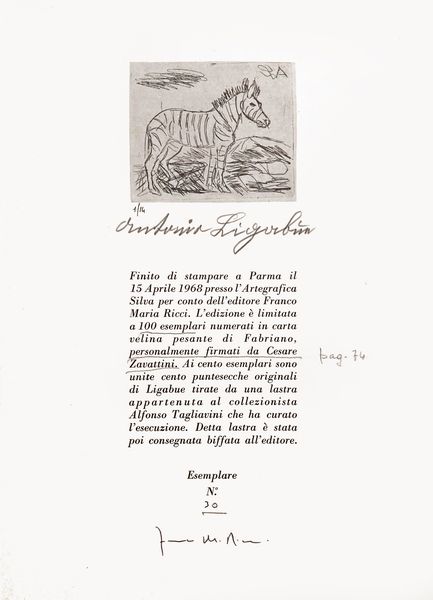 1/14
Antonio Ligabue
Finito di stampare a Parma il
15 Aprile 1968 presso l'Artegrafica
Silva per conto dell'editore Franco
Maria Ricci. L'edizione è limitata
a 100 esemplari numerati in carta
velina pesante di Fabriano,
personalmente firmati da Cesare
Zavattini. Ai cento esemplari sono
unite cento puntesecche originali
di Ligabue tirate da una lastra
appartenuta al collezionista
Alfonso Tagliavini che ha curato
l'esecuzione. Detta lastra è stata
poi consegnata biffata all'editore.
pag. 74
Esemplare
N.º
30